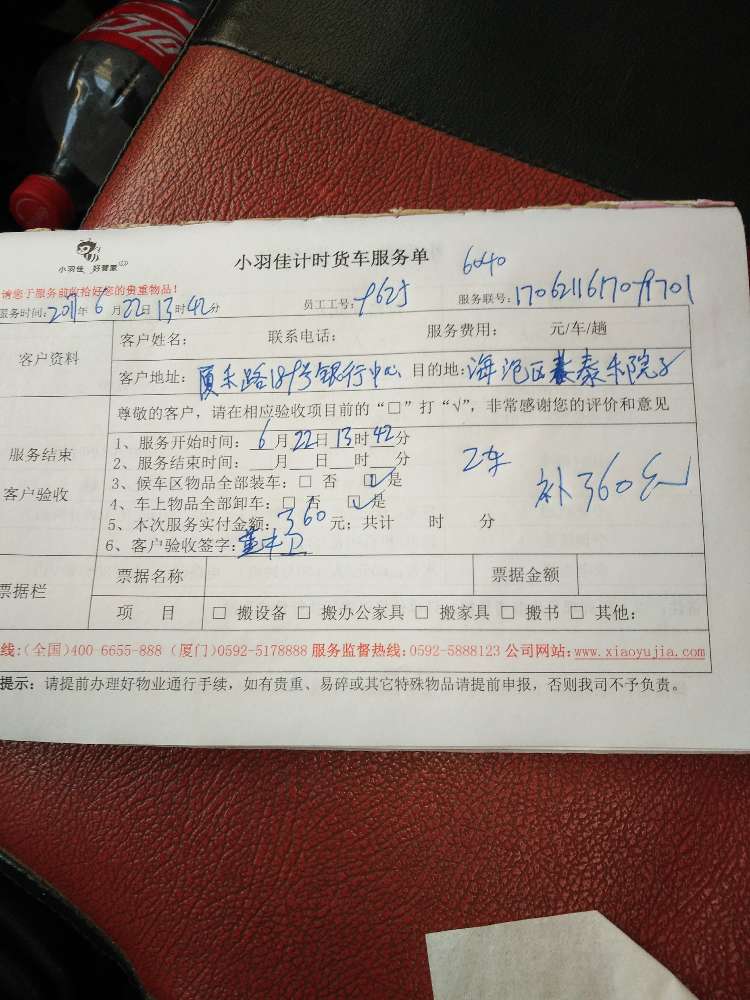 小羽佳 好管家
小羽佳计时货车服务单
6040
请您于服务前收拾好您的贵重物品!
服务时间:2017年6月22日13时42分 员工工号:9625 服务联号:
客户资料
客户姓名: 联系电话: 服务费用: 元/车/趟
客户地址:厦禾路189号银行中心 目的地:海沧区 泰禾院子
尊敬的客户,请在相应验收项目前的“□”打“√”,非常感谢您的评价和意见
服务结束
客户验收
1、服务开始时间:6月22日13时42分
2、服务结束时间:__月__日__时__分
3、候车区物品全部装车:□ 否 ☑ 是
4、车上物品全部卸车:□ 否 ☑ 是
5、本次服务实付金额:360元;共计 时 分
6、客户验收签字:
2车
补360元
票据栏
票据名称 票据金额
项 目 □ 搬设备 □ 搬办公家具 □ 搬家具 □ 搬书 □ 其他:
线:(全国)400-6655-888 (厦门)0592-5178888 服务监督热线:0592-5888123 公司网站:www.xiaoyujia.com
提示:请提前办理好物业通行手续,如有贵重、易碎或其它特殊物品请提前申报,否则我司不予负责。